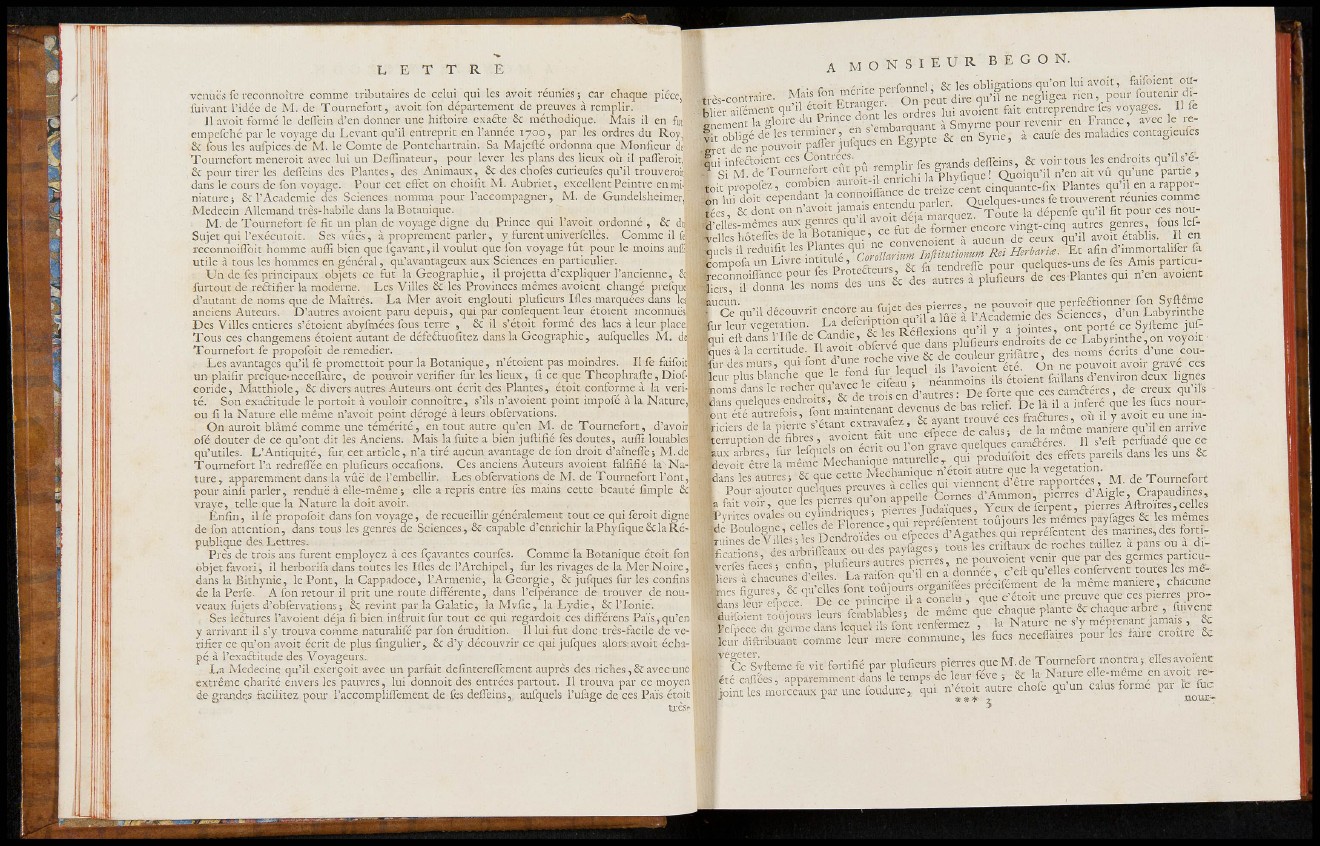 LETTRE
venuës se reconnoître comme tributaires de celui qui les avoit réunies; car chaque piéce,
suivant l'idée de M. de Tournefort, avoit son département de preuves à remplir.
Il avoit formé le dessein d'en donner une histoire exacte & méthodique. Mais il en fut
empesché par le voyage du Levant qu'il entreprit en l'année 1700, par les ordres du Roy,
& sous les auspices de M. le Comte de Pontchartrain. Sa Majesté ordonna que Monsieur de
Tournefort meneroit avec lui un Dessinateur, pour lever les plans des lieux où il passeroit,
& pour tirer les desseins des Plantes, des Animaux, & des choses curieuses qu'il trouveroit
dans le cours de son voyage. Pour cet effet on choisit M. Aubriet, excellent Peintre en mi-
niature; & l'Academie des Sciences nomma pour l'accompagner, M. de Gundelsheimer,
Medecin Allemand très-habile dans la Botanique.
M. de Tournefort se fit un plan de voyage digne du Prince qui l'avoit ordonné, & du
Sujet qui l'exécutoit. Ses vûës, à proprement parler, y furent universelles. Comme il se
reconnoissoit homme aussi bien que sçavant, il voulut que son voyage fût pour le moins aussi
utile à tous les hommes en général, qu'avantageux aux Sciences en particulier.
Un de ses principaux objets ce fut la Geographie, il projetta d'expliquer l'ancienne, &
surtout de rectifier la moderne. Les Villes & les Provinces mêmes avoient changé presque
d'autant de noms que de Maîtres. La Mer avoit englouti plusieurs Isles marquées dans les
anciens Auteurs. D'autres avoient paru depuis, qui par consequent leur étoient inconnuës
Des Villes entieres s'étoient abysmées sous terre, & il s'étoit formé des lacs à leur place
Tous ces changemens étoient autant de défectuositez dans la Geographie, ausquelles M. de
Tournefort se proposoit de remedier.
Les avantages qu'il se promettoit pour la Botanique, n'étoient pas moindres. Il se faisoit
un plaisir presque necessaire, de pouvoir verifier sur les lieux, si ce que Theophraste, Dios-
coride, Matthiole, & divers autres Auteurs ont écrit des Plantes, étoit conforme à la veri-
té. Son exactitude le portoit à vouloir connoître, s'ils n'avoient point imposé à la Nature,
ou si la Nature elle même n'avoit point dérogé à leurs observations.
On auroit blâmé comme une témérité, en tout autre qu'en M. de Tournefort, d'avoir
osé douter de ce qu'ont dit les Anciens. Mais la suite a bien justifié ses doutes, aussi louables
qu'utiles. L'Antiquité, sur cet article, n'a tiré aucun avantage de son droit d'aînesse; M. de
Tournefort l'a redressée en plusieurs occasions. Ces anciens Auteurs avoient falsifié la Na-
ture, apparemment dans la vûë de l'embellir. Les observations de M. de Tournefort l'ont,
pour ainsi parler, renduë à elle-même; elle a repris entre ses mains cette beauté simple &
vraye, telle que la Nature la doit avoir.
Enfin, il se proposoit dans son voyage, de recueillir généralement tout ce qui seroit digne
de son attention, dans tous les genres de Sciences, & capable d'enrichir la Physique & la Ré-
publique des Lettres.
Près de trois ans furent employez à ces sçavantes courses. Comme la Botanique étoit son
objet favori, il herborisa dans toutes les Isles de l'Archipel, sur les rivages de la Mer Noire,
dans la Bithynie, le Pont, la Cappadoce, l'Armenie, la Georgie, & jusques sur les confins
de la Perse. A son retour il prit une route différente, dans l'espérance de trouver de nou-
veaux sujets d'observations; & revint par la Galatie, la Mysie, la Lydie, & l'Ionie.
Ses lectures l'avoient déja si bien instruit sur tout ce qui regardoit ces différens Païs, qu'en
y arrivant il s'y trouva comme naturalisé par son érudition. Il lui fut donc très-facile de ve-
rifier ce qu'on avoit écrit de plus singulier, & d'y découvrir ce qui jusques alors avoit écha-
pé à l'exactitude des Voyageurs.
La Medecine qu'il exerçoit avec un parfait desinteressement auprès des riches, & avec une
extrême charité envers les pauvres, lui donnoit des entrées partout. Il trouva par ce moyen
de grandes facilitez pour l'accomplissement de ses desseins, ausquels l'usage de ces Païs étoit
très-
A MONSIEUR BEGON.
très-contraire. Mais son mérite personnel, & les obligations qu'on lui avoit, faisoient ou-
blier aisément qu'il étoit Etranger. On peut dire qu'il ne negligea rien, pour soutenir di-
gnement la gloire du Prince dont les ordres lui avoient fait entreprendre ses voyages. Il se
vit obligé de les terminer, en s'embarquant à Smyrne pour revenir en France, avec le re-
gret de ne pouvoir passer jusques en Egypte & en Syrie, à cause des maladies contagieuses
qui infectoient ces Contrées.
Si M. de Tournefort eût pû remplir ses grands desseins, & voir tous les endroits qu'il s'é-
toit proposez, combien auroit-il enrichi la Physique! Quoiqu'il n'en ait vû qu'une partie,
on lui doit cependant la connoissance de treize cent cinquante-six Plantes qu'il en a rappor-
tées, & dont on n'avoit jamais entendu parler. Quelques-unes se trouverent réunies comme
d'elles-mêmes aux genres qu'il avoit déja marquez. Toute la dépense qu'il fit pour ces nou-
velles hôtesses de la Botanique, ce fut de former encore vingt-cinq autres genres, sous les-
quels il reduisit les Plantes qui ne convenoient à aucun de ceux qu'il avoit établis. Il en
composa un Livre intitulé, Corollarium Institutionum Rei Herbariæ. Et afin d'immortaliser sa
reconnoissance pour ses Protecteurs, & sa tendresse pour quelques-uns de ses Amis particu-
liers, il donna les noms des uns & des autres à plusieurs de ces Plantes qui n'en avoient
aucun.
Ce qu'il découvrit encore au sujet des pierres, ne pouvoit que perfectionner son Systême
sur leur vegetation. La description qu'il a lûë à l'Academie des Sciences, d'un Labyrinthe
qui est dans l'Isle de Candie, & les Réflexions qu'il y a jointes, ont porté ce Systeme jus-
ques à la certitude. Il avoit observé que dans plusieurs endroits de ce Labyrinthe, on voyoit
sur des murs, qui sont d'une roche vive & de couleur grisâtre, des noms écrits d'une cou-
leur plus blanche que le fond sur lequel ils l'avoient été. On ne pouvoit avoir gravé ces
noms dans le rocher qu'avec le ciseau; néanmoins ils étoient saillans d'environ deux lignes
dans quelques endroits, & de trois en d'autres: De sorte que ces caractéres, de creux qu'ils
ont été autrefois, sont maintenant devenus de bas relief. De là il a inferé que les sucs nour-
riciers de la pierre s'étant extravasez, & ayant trouvé ces fractures, où il y avoit eu une in-
terruption de fibres, avoient fait une espece de calus; de la même maniere qu'il en arrive
aux arbres, sur lesquels on écrit ou l'on grave quelques caractéres. Il s'est persuadé que ce
devoit être la même Mechanique naturelle, qui produisoit des effets pareils dans les uns &
dans les autres; & que cette Mechanique n'étoit autre que la vegetation.
Pour ajouter quelques preuves à celles qui viennent d'être rapportées, M. de Tournefort
a fait voir, que les pierres qu'on appelle Cornes d'Ammon, pierres d'Aigle, Crapaudines,
Pyrites ovales ou cylindriques; pierres Judaïques, Yeux de serpent, pierres Astroïtes, celles
de Boulogne, celles de Florence, qui représentent toûjours les mêmes paysages & les mêmes
ruines de Villes; les Dendroïdes ou especes d'Agathes qui représentent des marines, des forti-
fications, des arbrisseaux ou des paysages; tous les cristaux de roches taillez à pans ou à di-
verses faces; enfin, plusieurs autres pierres, ne pouvoient venir que par des germes particu-
liers à chacunes d'elles. La raison qu'il en a donnée, c'est qu'elles conservent toutes les mê-
mes figures, & qu'elles sont toûjours organisées précisément de la même maniere, chacune
dans leur espece. De ce principe il a conclu, que c'étoit une preuve que ces pierres pro-
duisoient toûjours leurs semblables; de même que chaque plante & chaque arbre, suivent
l'espece du germe dans lequel ils sont renfermez, la Nature ne s'y méprenant jamais, &
leur distribuant comme leur mere commune, les sucs necessaires pour les faire croître &
végéter.
Ce Systeme se vit fortifié par plusieurs pierres que M. de Tournefort montra; elles avoient
été cassées, apparemment dans le temps de leur séve; & la Nature elle-même en avoit re-
joint les morceaux par une soudure, qui n'étoit autre chose qu'un calus formé par le suc
*** 3
nour-